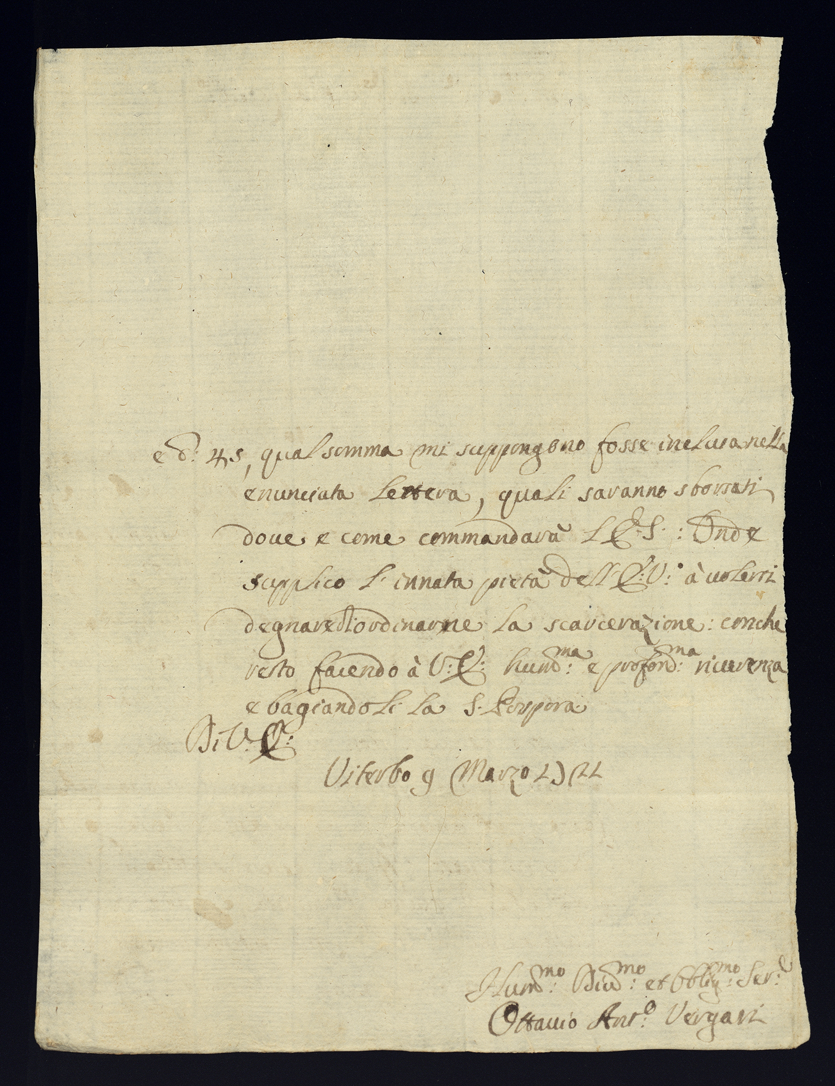 e d: 45, qual somma mi suppongono fosse inclusa nella
enunciata lettera, quali saranno sborsati
doue e come commandarà L'E. S.: Onde
supplico l'innata pietà dell'E: V: à uolersi
degnare d'ordinarne la scarcerazione: con che
resto facendo à V: E: hum:ma e profond:ma riuerenza
e bagiandoli la S. Porpora
Di V: E:
Viterbo 9 Marzo
Hum:mo Diu:mo et Obblig:mo Ser:e
Ottauio Ant:o Vergari